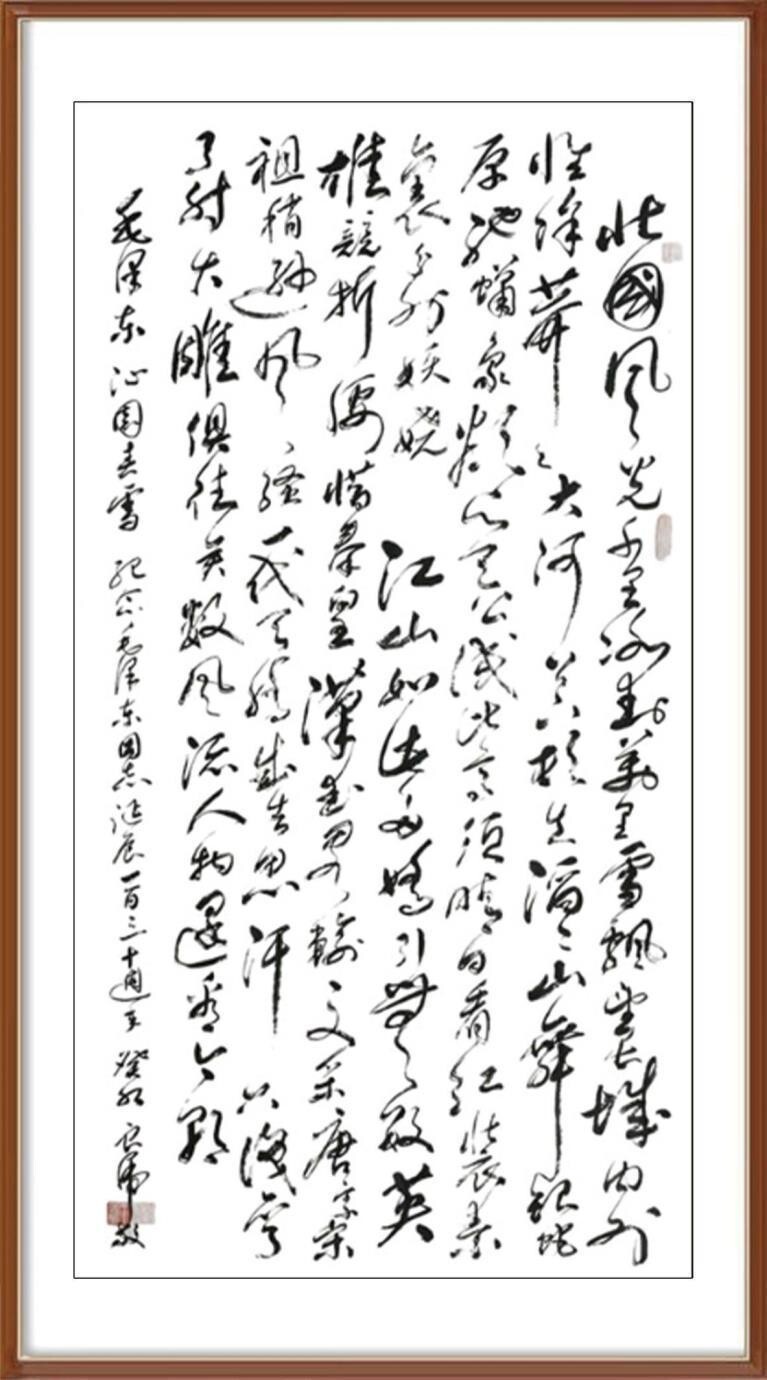 北國风光千里冰封萬里雪飘望长城内外
惟馀莽〻大河上下顿失滔〻山舞银蛇
原驰蜡象欲与天公试比高须晴日看红装素
裹分外妖娆江山如此多娇引無数英
雄競折腰惜秦皇漢武略输文采唐宗宋
祖稍逊风骚一代天骄成吉思汗只识弯
弓射大雕俱往矣数风流人物还看今朝
毛泽东沁园春雪 纪念毛泽东同志诞辰一百三十週年 癸卯 敬